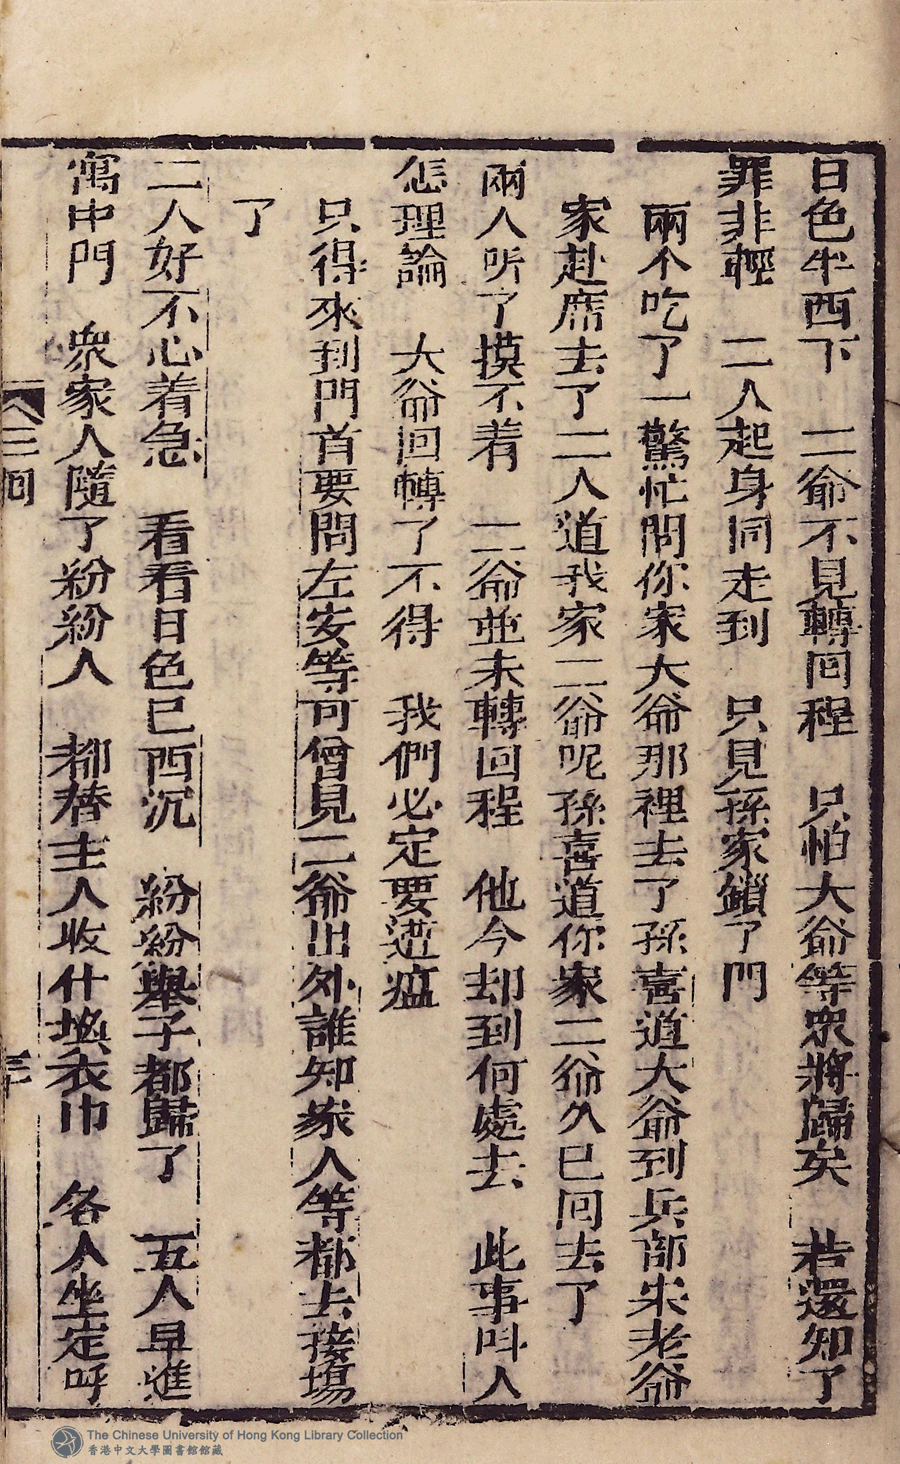 日色半西下　二爺不見轉回程　只怕大爺等眾將歸矣　若還知了
罪非輕　二人起身同走到　只見孫家鎖了門
兩个吃了一驚忙問你家大爺那裡去了孫喜道大爺到兵部宋老爺
家赴席去了二人道我家二爺呢孫喜道你家二爺久已回去了
兩人听了摸不着　二爺並未轉回程　他今却到何處去　此事呌人
怎理論　大爺回轉了不得　我們必定要遭瘟
只得來到門首要問左安等可曾見二爺出外誰知家人等都去接場
了
二人好不心着急　看看日色已西沉　紛紛舉子都歸了　五人早進
寓中門　眾家人隨了紛紛人　都替主人收什換衣巾　各人坐定呼
三回
三十
The Chinese University of Hong Kong Library Collection
香港中文大學圖書館館藏